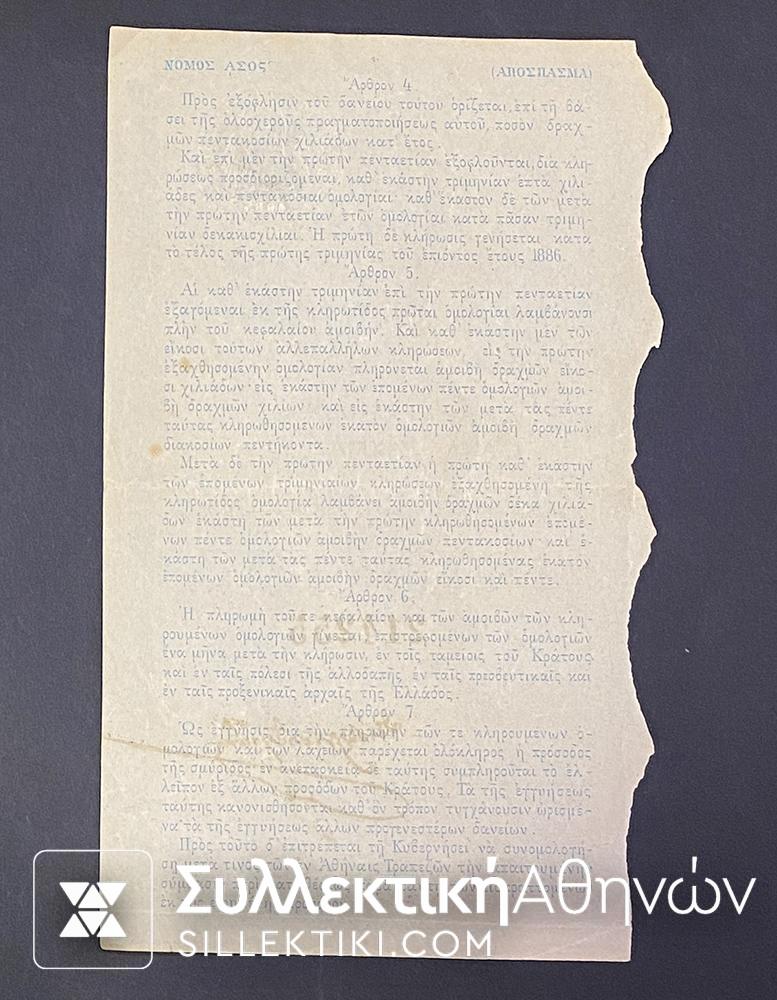 ΝΟΜΟΣ ΑΣΟΣ΄ (ΑΠΟΣΠΑΣΜΑ)
Ἄρθρον 4
Πρὸς ἐξόφλησιν τοῦ δανείου τούτου ὁρίζεται, ἐπὶ τῇ βά-
σει τῆς ὁλοσχεροῦς πραγματοποιήσεως αὐτοῦ, ποσὸν δραχ-
μῶν πεντακοσίων χιλιάδων κατ' ἔτος.
Καὶ ἐπὶ μὲν τὴν πρώτην πενταετίαν ἐξοφλοῦνται, διὰ κλη-
ρώσεως προσδιοριζόμεναι, καθ' ἑκάστην τριμηνίαν ἑπτὰ χιλι-
άδες καὶ πεντακόσιαι ὁμολογίαι· καθ' ἕκαστον δὲ τῶν μετὰ
τὴν πρώτην πενταετίαν ἐτῶν ὁμολογίαι κατὰ πᾶσαν τριμη-
νίαν δεκακισχίλιαι. Ἡ πρώτη δὲ κλήρωσις γενήσεται κατὰ
τὸ τέλος τῆς πρώτης τριμηνίας τοῦ ἐπιόντος ἔτους 1886.
Ἄρθρον 5.
Αἱ καθ' ἑκάστην τριμηνίαν ἐπὶ τὴν πρώτην πενταετίαν
ἐξαγόμεναι ἐκ τῆς κληρωτίδος πρῶται ὁμολογίαι λαμβάνουσι
πλὴν τοῦ κεφαλαίου ἀμοιβήν. Καὶ καθ' ἑκάστην μὲν τῶν
εἴκοσι τούτων ἀλλεπαλλήλων κληρώσεων, εἰς τὴν πρώτην
ἐξαχθησομένην ὁμολογίαν πληρόνεται ἀμοιβὴ δραχμῶν εἴκο-
σι χιλιάδων· εἰς ἑκάστην τῶν ἑπομένων πέντε ὁμολογιῶν ἀμοι-
βὴ δραχμῶν χιλίων καὶ εἰς ἑκάστην τῶν μετὰ τὰς πέντε
ταύτας κληρωθησομένων ἑκατὸν ὁμολογιῶν ἀμοιβὴ δραχμῶν
διακοσίων πεντήκοντα.
Μετὰ δὲ τὴν πρώτην πενταετίαν ἡ πρώτη καθ' ἑκάστην
τῶν ἑπομένων τριμηνιαίων κληρώσεων ἐξαχθησομένη τῆς
κληρωτίδος ὁμολογία λαμβάνει ἀμοιβὴν δραχμῶν δέκα χιλιά-
δων ἑκάστη τῶν μετὰ τὴν πρώτην κληρωθησομένων ἑπομέ-
νων πέντε ὁμολογιῶν ἀμοιβὴν δραχμῶν πεντακοσίων καὶ ἑ-
κάστη τῶν μετὰ τὰς πέντε ταύτας κληρωθησομένας ἑκατὸν
ἑπομένων ὁμολογιῶν ἀμοιβὴν δραχμῶν εἴκοσι καὶ πέντε.
Ἄρθρον 6.
Ἡ πληρωμὴ τοῦ τε κεφαλαίου καὶ τῶν ἀμοιβῶν τῶν κλη-
ρουμένων ὁμολογιῶν γίνεται ἐπιστρεφομένων τῶν ὁμολογιῶν
ἕνα μῆνα μετὰ τὴν κλήρωσιν, ἐν τοῖς ταμείοις τοῦ Κράτους
καὶ ἐν ταῖς πόλεσι τῆς ἀλλοδαπῆς ἐν ταῖς πρεσβευτικαῖς καὶ
ἐν ταῖς προξενικαῖς ἀρχαῖς τῆς Ἑλλάδος.
Ἄρθρον 7
Ὡς ἐγγύησις διὰ τὴν πληρωμὴν τῶν τε κληρουμένων ὁ-
μολογιῶν καὶ τῶν λαχείων παρέχεται ὁλόκληρος ἡ πρόσοδος
τῆς σμύριδος ἐν ἀνεπαρκείᾳ δὲ ταύτης συμπληροῦται τὸ ἐλ-
λεῖπον ἐξ ἄλλων προσόδων τοῦ Κράτους. Τὰ τῆς ἐγγυήσεως
ταύτης κανονισθήσονται καθ' ὃν τρόπον τυγχάνουσιν ὡρισμέ-
να τὰ τῆς ἐγγυήσεως ἄλλων προγενεστέρων δανείων.
Πρὸς τοῦτο δ' ἐπιτρέπεται τῇ Κυβερνήσει νὰ συνομολογή-
σῃ μετά τινος τῶν ἐν Ἀθήναις Τραπεζῶν τὴν ἀπαιτουμένην
Συλλεκτική Αθηνών
SILLEKTIKI.COM